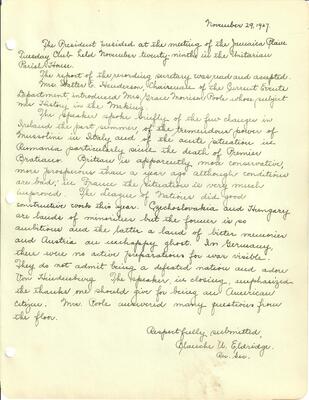 November 29, 1927.
The President presided at the meeting of the Jamaica Plain
Tuesday Club held November twenty-ninth in the Unitarian
Parish House.
The report of the recording secretary was read and accepted.
Mrs. Walter E. Henderson, Chairman of the Current Events
Department introduced Mrs. Grace Morrison Poole whose subject
was History in the Making.
The speaker spoke briefly of the few changes in
Ireland the past summer, of the tremendous power of
Mussolini in Italy and of the acute situation in
Rumania, particularly since the death of Premier
Bratiano. Britain is apparently more conservative,
more prosperous than a year ago although conditions
are bad; in France the situation is very much
improved. The League of Nations did good
constructive work this year. Czechoslovakia and Hungary
are lands of minorities but the former is so
ambitious and the latter a land of bitter memories
and Austria an unhappy ghost. In Germany,
there were no active preparations for war visible.
They do not admit being a defeated nation and adore
Von Hindenburg. The speaker in closing, emphasized
the thanks one should give for being an American
citizen. Mrs. Poole answered many questions from
the floor.
Respectfully submitted,
Blanche U. Eldridge.
Rec. Sec.